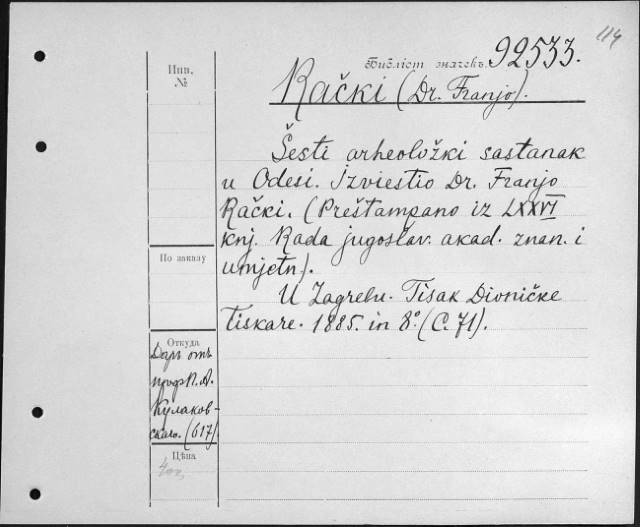 114
Библіот. значекъ. 92533.
Инв.
№
Rački (Dr. Franjo).
Šesti arheoložki sastanak
u Odesi. Izviestio Dr. Franjo
Rački. (Preštampano iz LXXVI
knj. Rada jugoslav. akad. znan. i
umjetn.).
U Zagrebu. Tisak Dioničke
tiskare. 1885. in 8º. (C. 71).
По заказу
Откуда
Даръ отъ
проф. П. А.
Кулаков-
скаго. (617).
Цѣна